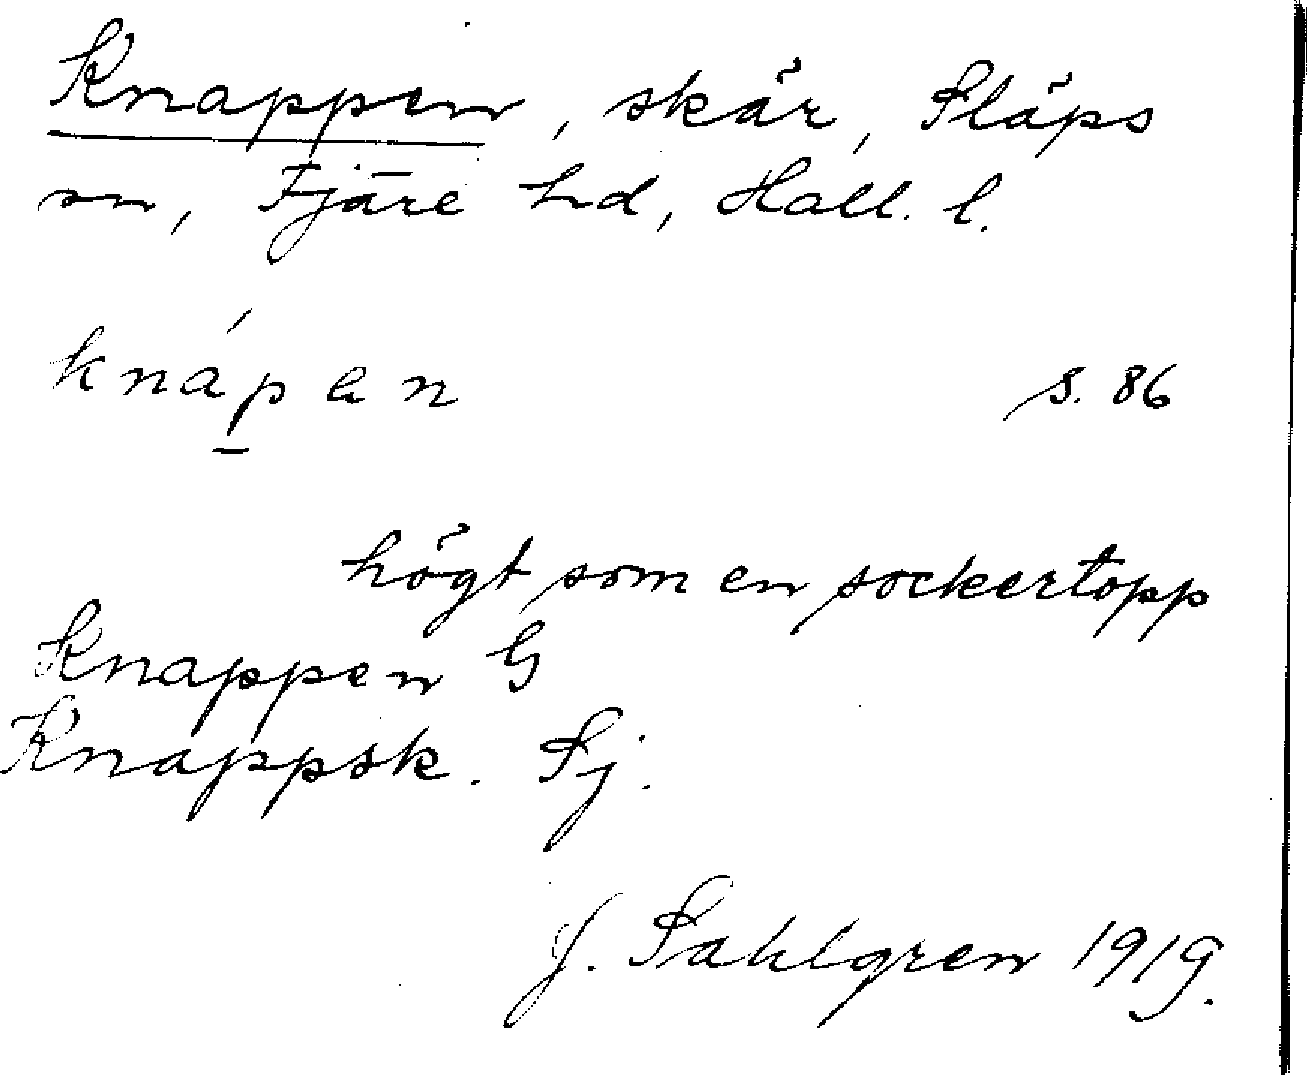 Knappen, skär, Släps
sn, Fjäre hd, Hall. l.
knáp̲en s. 86
högt som en sockertopp
Knappen G
Knappsk. Sj.
J. Sahlgren 1919.